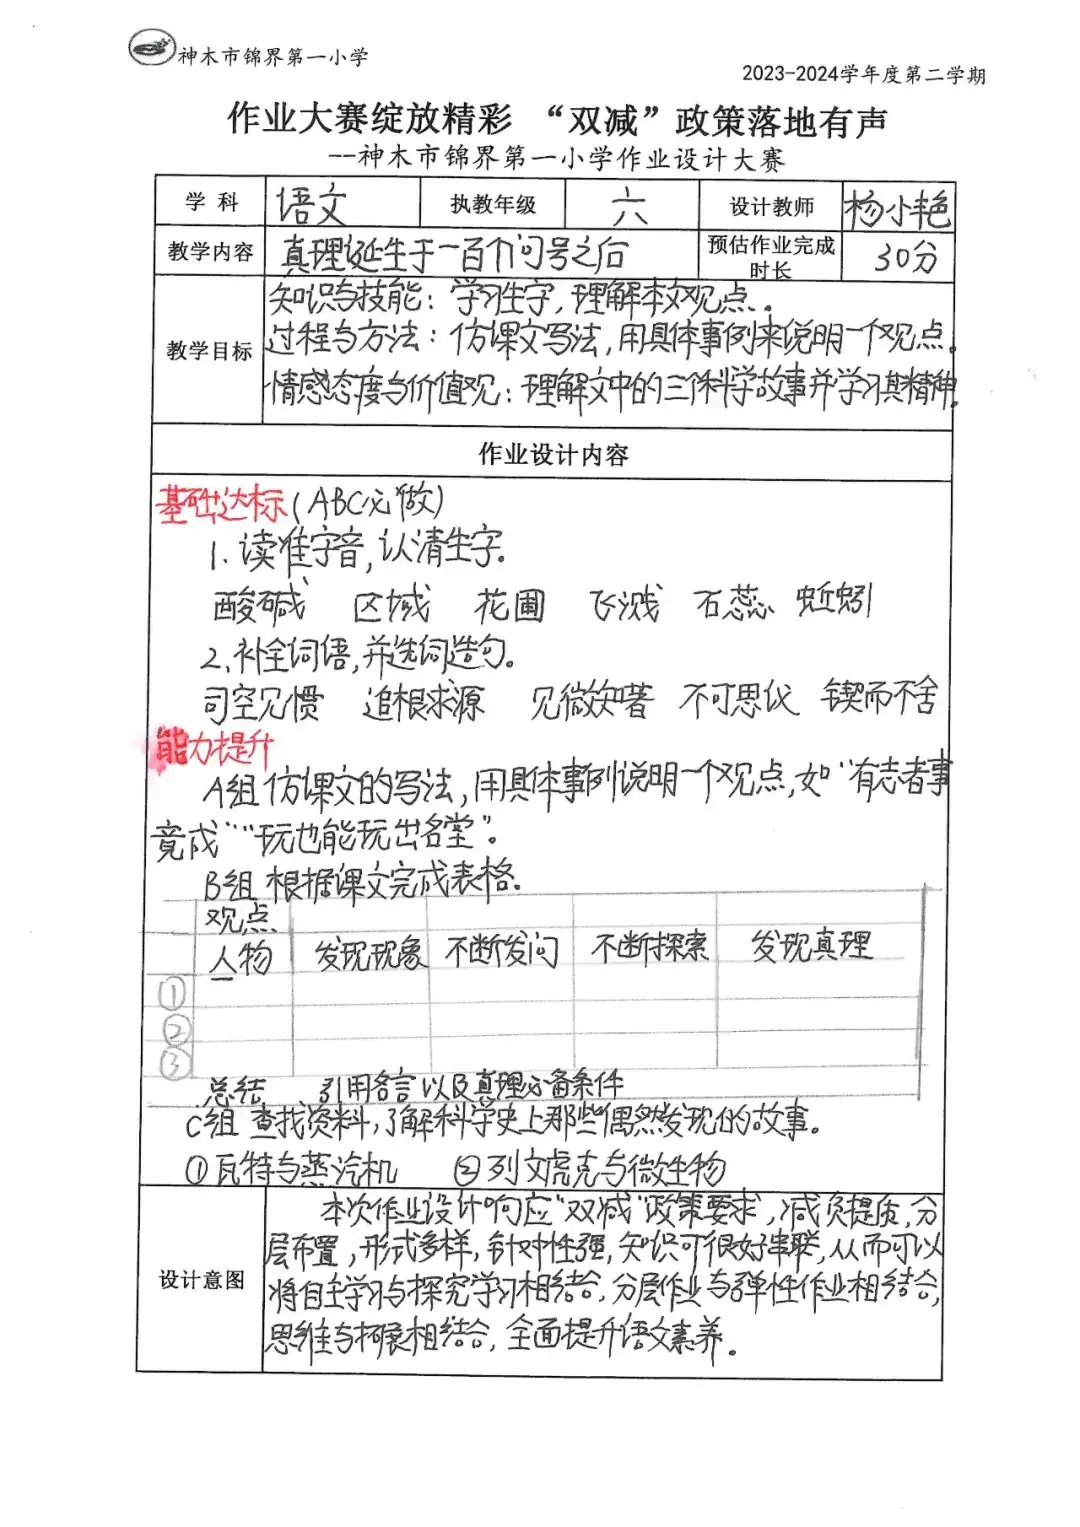 神木市锦界第一小学
2023-2024学年度第二学期
作业大赛绽放精彩 “双减”政策落地有声
--神木市锦界第一小学作业设计大赛
学 科 语文 执教年级 六 设计教师 杨小艳
教学内容 真理诞生于一百个问号之后 预估作业完成时长 30分
教学目标
知识与技能：学习生字，理解本文观点。
过程与方法：仿课文写法，用具体事例来说明一个观点。
情感态度与价值观：理解文中的三个科学故事并学习其精神。
作业设计内容
基础达标（ABC必做）
1. 读准字音，认清生字.
酸碱 区域 花圃 飞溅 石蕊 蚯蚓
2.补全词语，并选词造句。
司空见惯 追根求源 见微知著 不可思议 锲而不舍
能力提升
A组 仿课文的写法，用具体事例说明一个观点，如“有志者事
竟成”“玩也能玩出名堂”。
B组 根据课文完成表格.
观点
人物 发现现象 不断发问 不断探索 发现真理
①
②
③
总结 引用名言以及真理必备条件
C组 查找资料，了解科学史上那些偶然发现的故事。
①瓦特与蒸汽机 ②列文虎克与微生物
设计意图
本次作业设计响应“双减”政策要求，减负提质，分
层布置，形式多样，针对性强，知识可很好串联，从而可以
将自主学习与探究学习相结合，分层作业与弹性作业相结合，
思维与拓展相结合，全面提升语文素养。